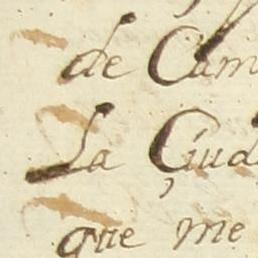 de Cam
La Çiud
que me